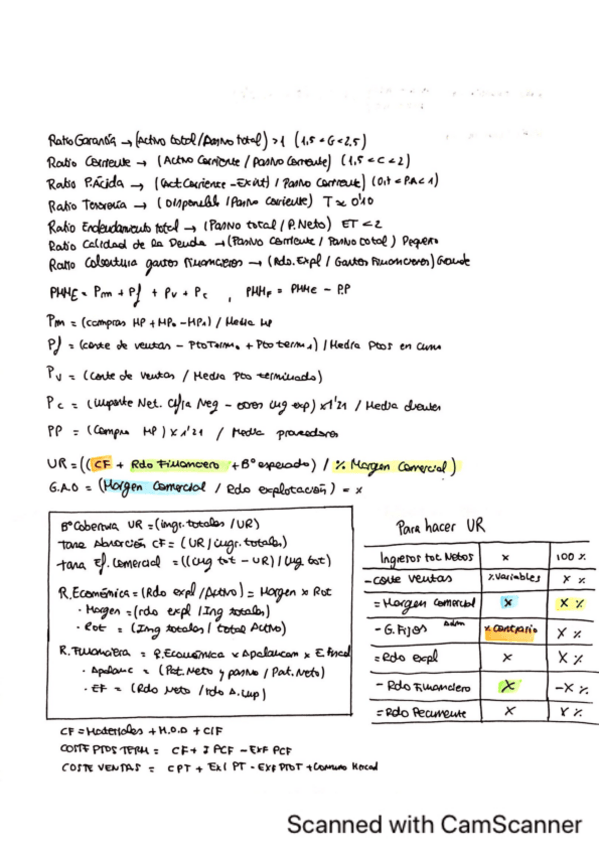 Ratio Garantía → (Activo total / Pasivo total) > 1 (1,5 < G < 2,5)
Ratio Corriente → (Activo Corriente / Pasivo Corriente) (1,5 < C < 2)
Ratio P.Ácida → (Act Corriente - Exist) / Pasivo Corriente) (0,5 < PA < 1)
Ratio Tesorería → (Disponible / Pasivo corriente) T ≈ 0'40
Ratio Endeudamiento total → (Pasivo total / P.Neto) ET < 2
Ratio Calidad de la Deuda → (Pasivo Corriente / Pasivo total) Pequeño
Ratio Cobertura gastos Financieros → (Rdo. Expl / Gastos Financieros) Grande
PMME = Pm + Pf + Pv + Pc , PMMF = PMME - PP
Pm = (compras MP + MP₀ - MP₁) / Media MP
Pf = (coste de ventas - Pto Term₀ + Pto term₁) / Media Ptos en curso
Pv = (Coste de ventas / Media Pto terminado)
Pc = (Importe Net. Cifra Neg - otros ing exp) x 1'21 / Media clientes
PP = (Compra MP) x 1'21 / Media proveedores
UR = ((CF + Rdo Financiero + Bº esperado) / % Margen Comercial)
G.A.O = (Margen Comercial / Rdo explotación) = x
Bº Cobertura UR = (ingr. totales / UR)
tasa Absorción CF = (UR / ingr. totales)
tasa Ef. Comercial = ((ing tot - UR) / ing tot)
R. Económica = (Rdo expl / Activo) = Margen x Rot
· Margen = (rdo expl / Ing totales)
· Rot = (Ing totales / total Activo)
R. Financiera = R. Económica x Apalancam x E. Fiscal
· Apalanc = (Pat. Neto y pasivo / Pat. Neto)
· EF = (Rdo Neto / rdo A. Imp)
Para hacer UR
Ingresos tot Netos x 100 %
- coste ventas % variables X %
= Margen comercial x X %
- G. Fijos Adm x contrario X %
= Rdo expl x X %
- Rdo Financiero X -X %
= Rdo Recurrente X X %
CF = Materiales + M.O.D + CIF
COSTE PTOS TERM = CF + I PCF - EXF PCF
COSTE VENTAS = CPT + EXI PT - EXF PTOT + Consumo Mocad
Scanned with CamScanner